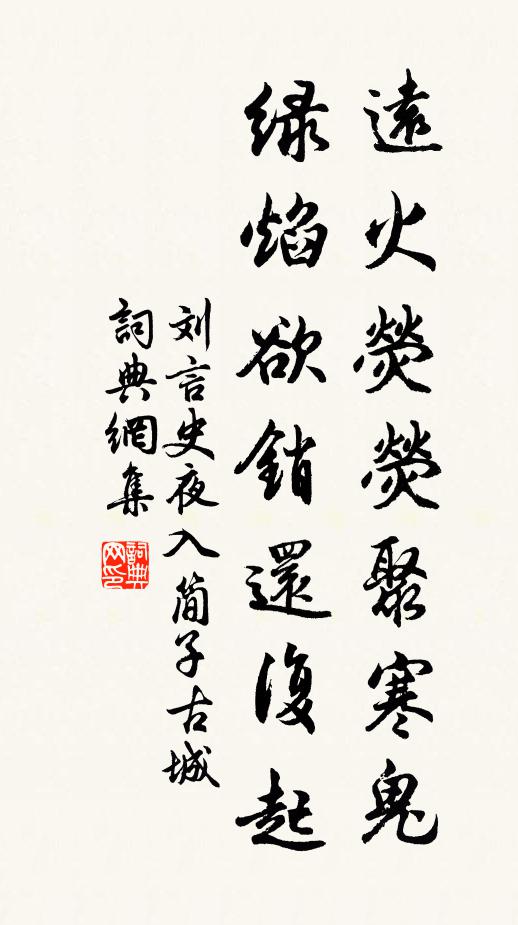 遠火熒熒聚寒鬼
緑焰欲銷還復起
刘言史夜入简子古城
詞典網集
詞典网印